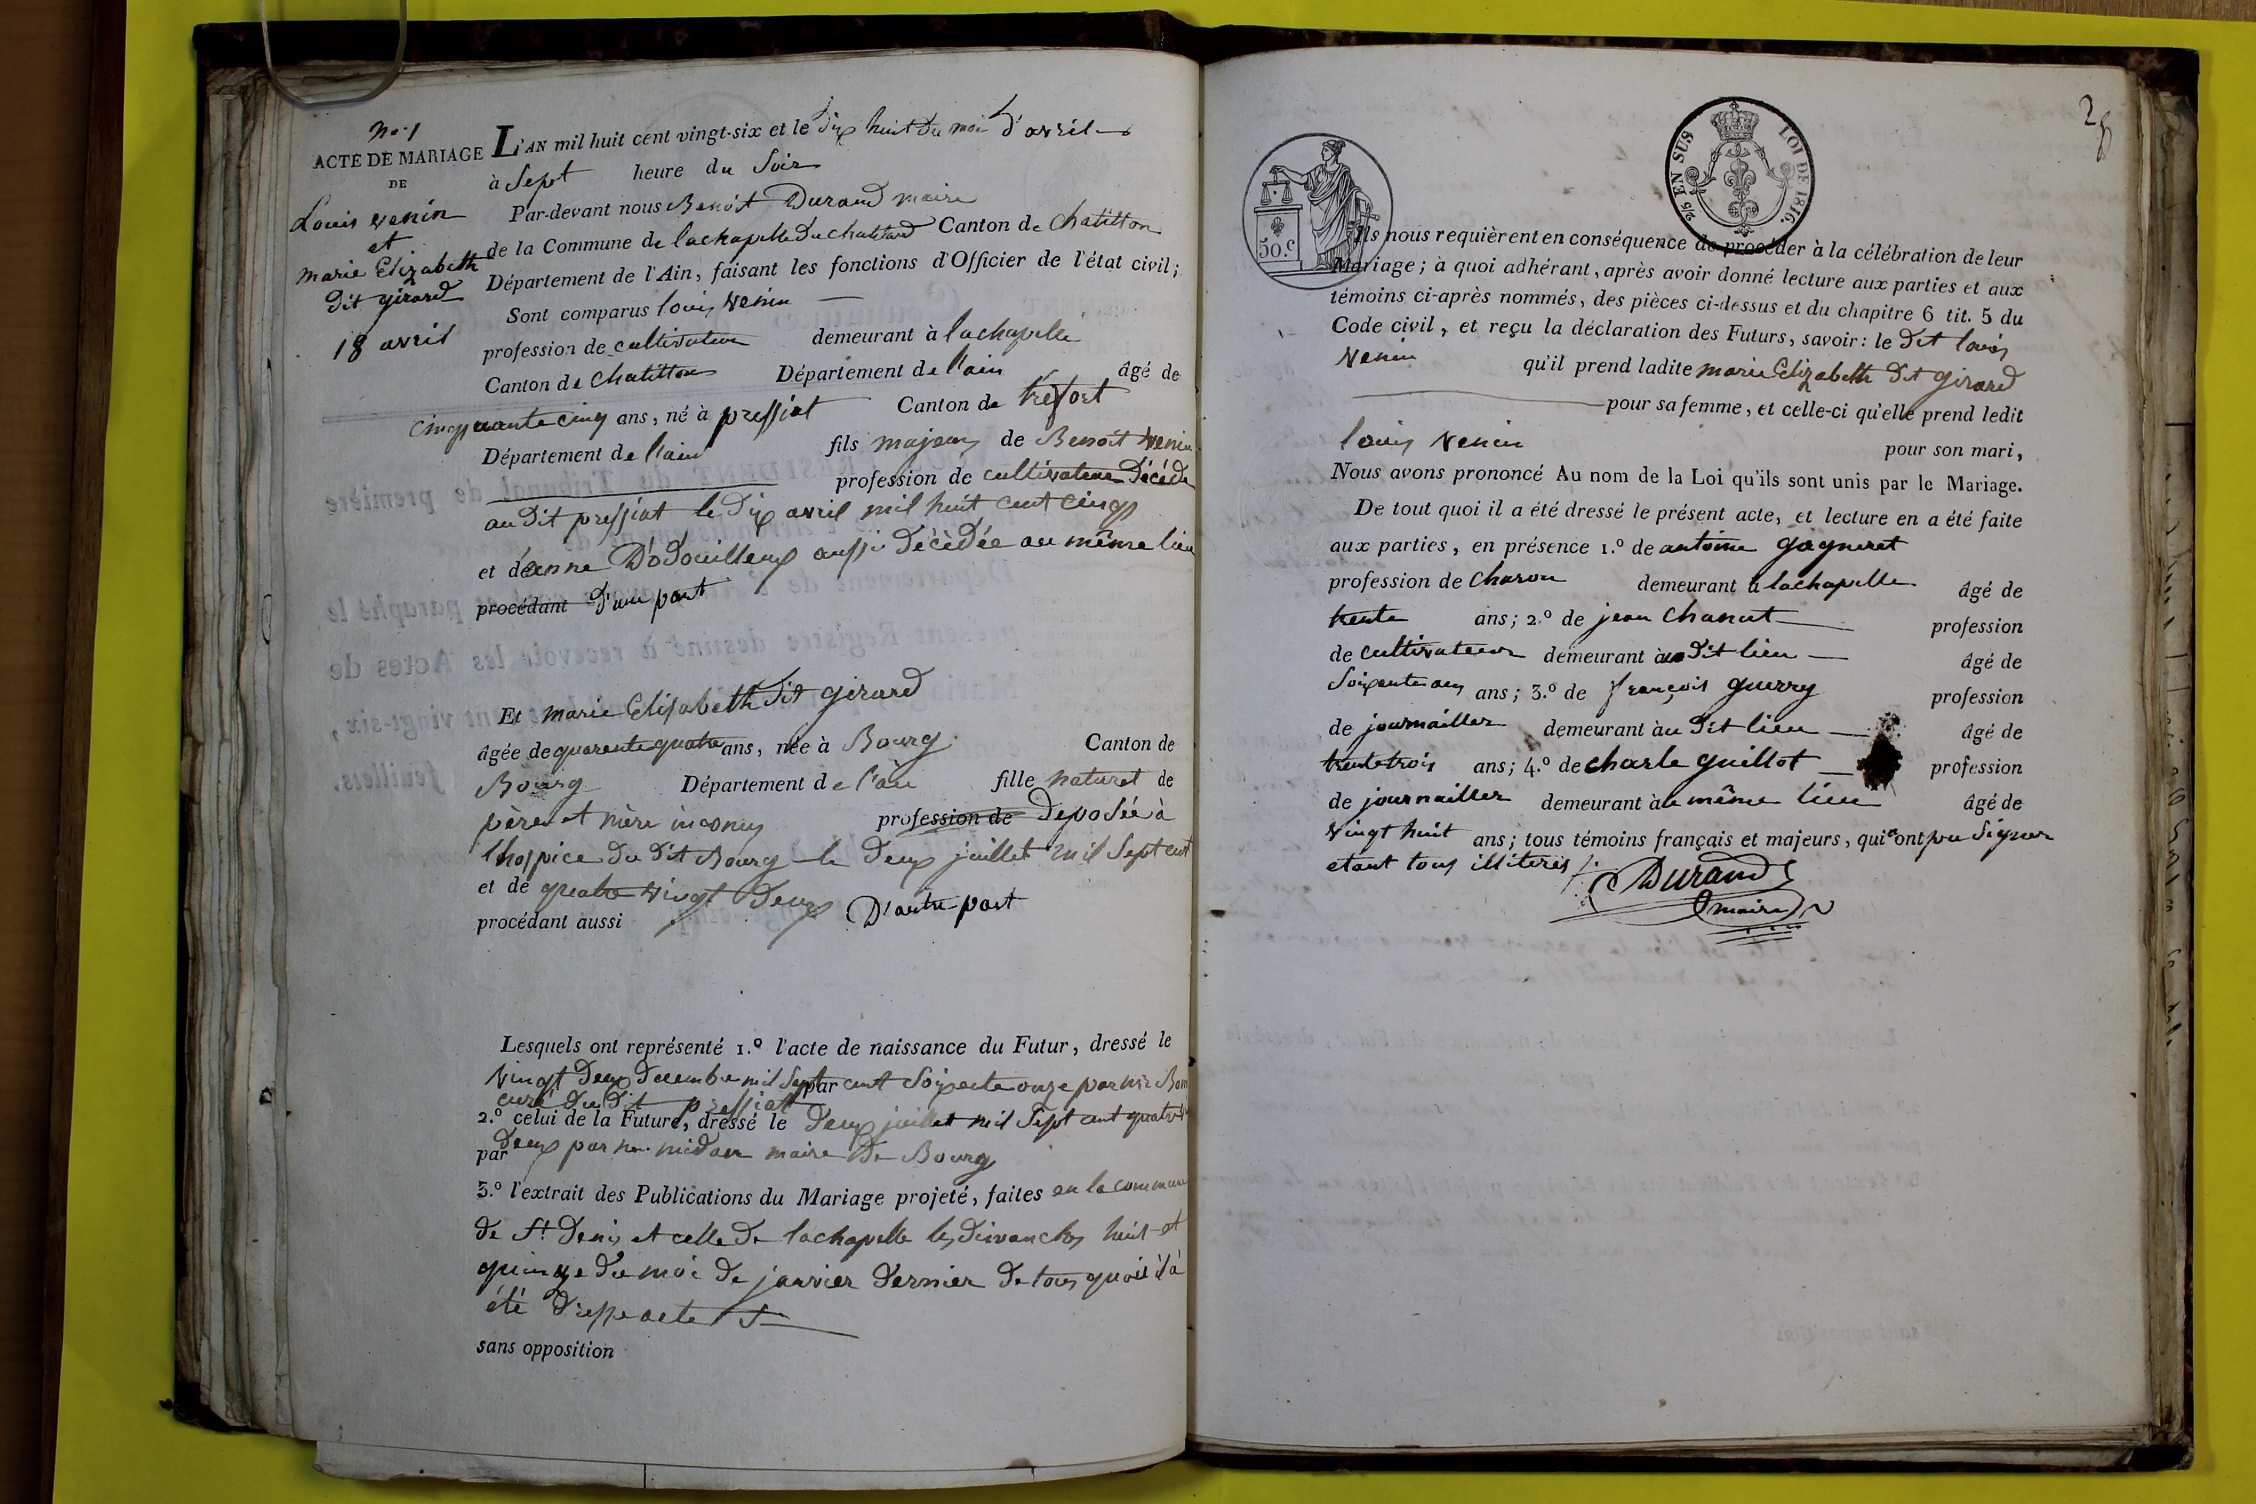 no. 1
ACTE DE MARIAGE
DE
Louis venin
et
marie Elizabeth
dit girard
18 avril
L'AN mil huit cent vingt-six et le dix huit du moi d'avril
à Sept heure du Soir
Par-devant nous Benoît Durand maire
de la Commune de lachapelle du chatelard Canton de Chatillon
Département de l'Ain, faisant les fonctions d'Officier de l'état civil;
Sont comparus louis venin
profession de cultivateur demeurant à lachapelle
Canton de Chatillon Département de l'ain âgé de
cinquante cinq ans, né à pressiat Canton de trefort
Département de l'ain fils majeur de Benoît venin
profession de cultivateur décédé
au dit pressiat le dix avril mil huit cent cinq
et de anne Dodouilleux aussi décédée au même lieu
procédant d'une part
Et marie Elisabeth dit girard
âgée de quarente quatre ans, née à Bourg Canton de
Bourg Département de l'ain fille naturel de
père et mère inconus profession de deposée à
l'hospice du dit Bourg le deux juillet mil Sept cent
et de quatre vingt deux
procédant aussi D'autre part
Lesquels ont représenté 1.º l'acte de naissance du Futur, dressé le
vingt deux decembre mil Sept cent Soixante onze par mr
par
curé du dit pressiat
2.º celui de la Future, dressé le deux juillet mil Sept cent quatre
deux par mr. midan maire de Bourg
par
3.º l'extrait des Publications du Mariage projeté, faites en la commune
de St Denis et celle de lachapelle les dimanches huit et
quinze du moi de janvier dernier de tous quoi il à
été dresse acte
sans opposition
28
50 C
2/5 EN SUS LOI DE 1816.
Ils nous requièrent en conséquence de procéder à la célébration de leur
Mariage; à quoi adhérant, après avoir donné lecture aux parties et aux
témoins ci-après nommés, des pièces ci-dessus et du chapitre 6 tit. 5 du
Code civil, et reçu la déclaration des Futurs, savoir: le dit louis
venin qu'il prend ladite marie Elizabeth dit girard
pour sa femme, et celle-ci qu'elle prend ledit
louis venin pour son mari,
Nous avons prononcé Au nom de la Loi qu'ils sont unis par le Mariage.
De tout quoi il a été dressé le présent acte, et lecture en a été faite
aux parties, en présence 1.º de antoine gagneret
profession de Charon demeurant à lachapelle âgé de
trente ans; 2.º de jean Chanut profession
de cultivateur demeurant à au dit lieu âgé de
Soixante ans; 3.º de françois guerry profession
de journailler demeurant àu dit lieu âgé de
trente trois ans; 4.º de charle guillot profession
de journailler demeurant àu même lieu âgé de
vingt huit ans; tous témoins français et majeurs, qui n'ont pu Signer
etant tous illiteres
Durand
maire